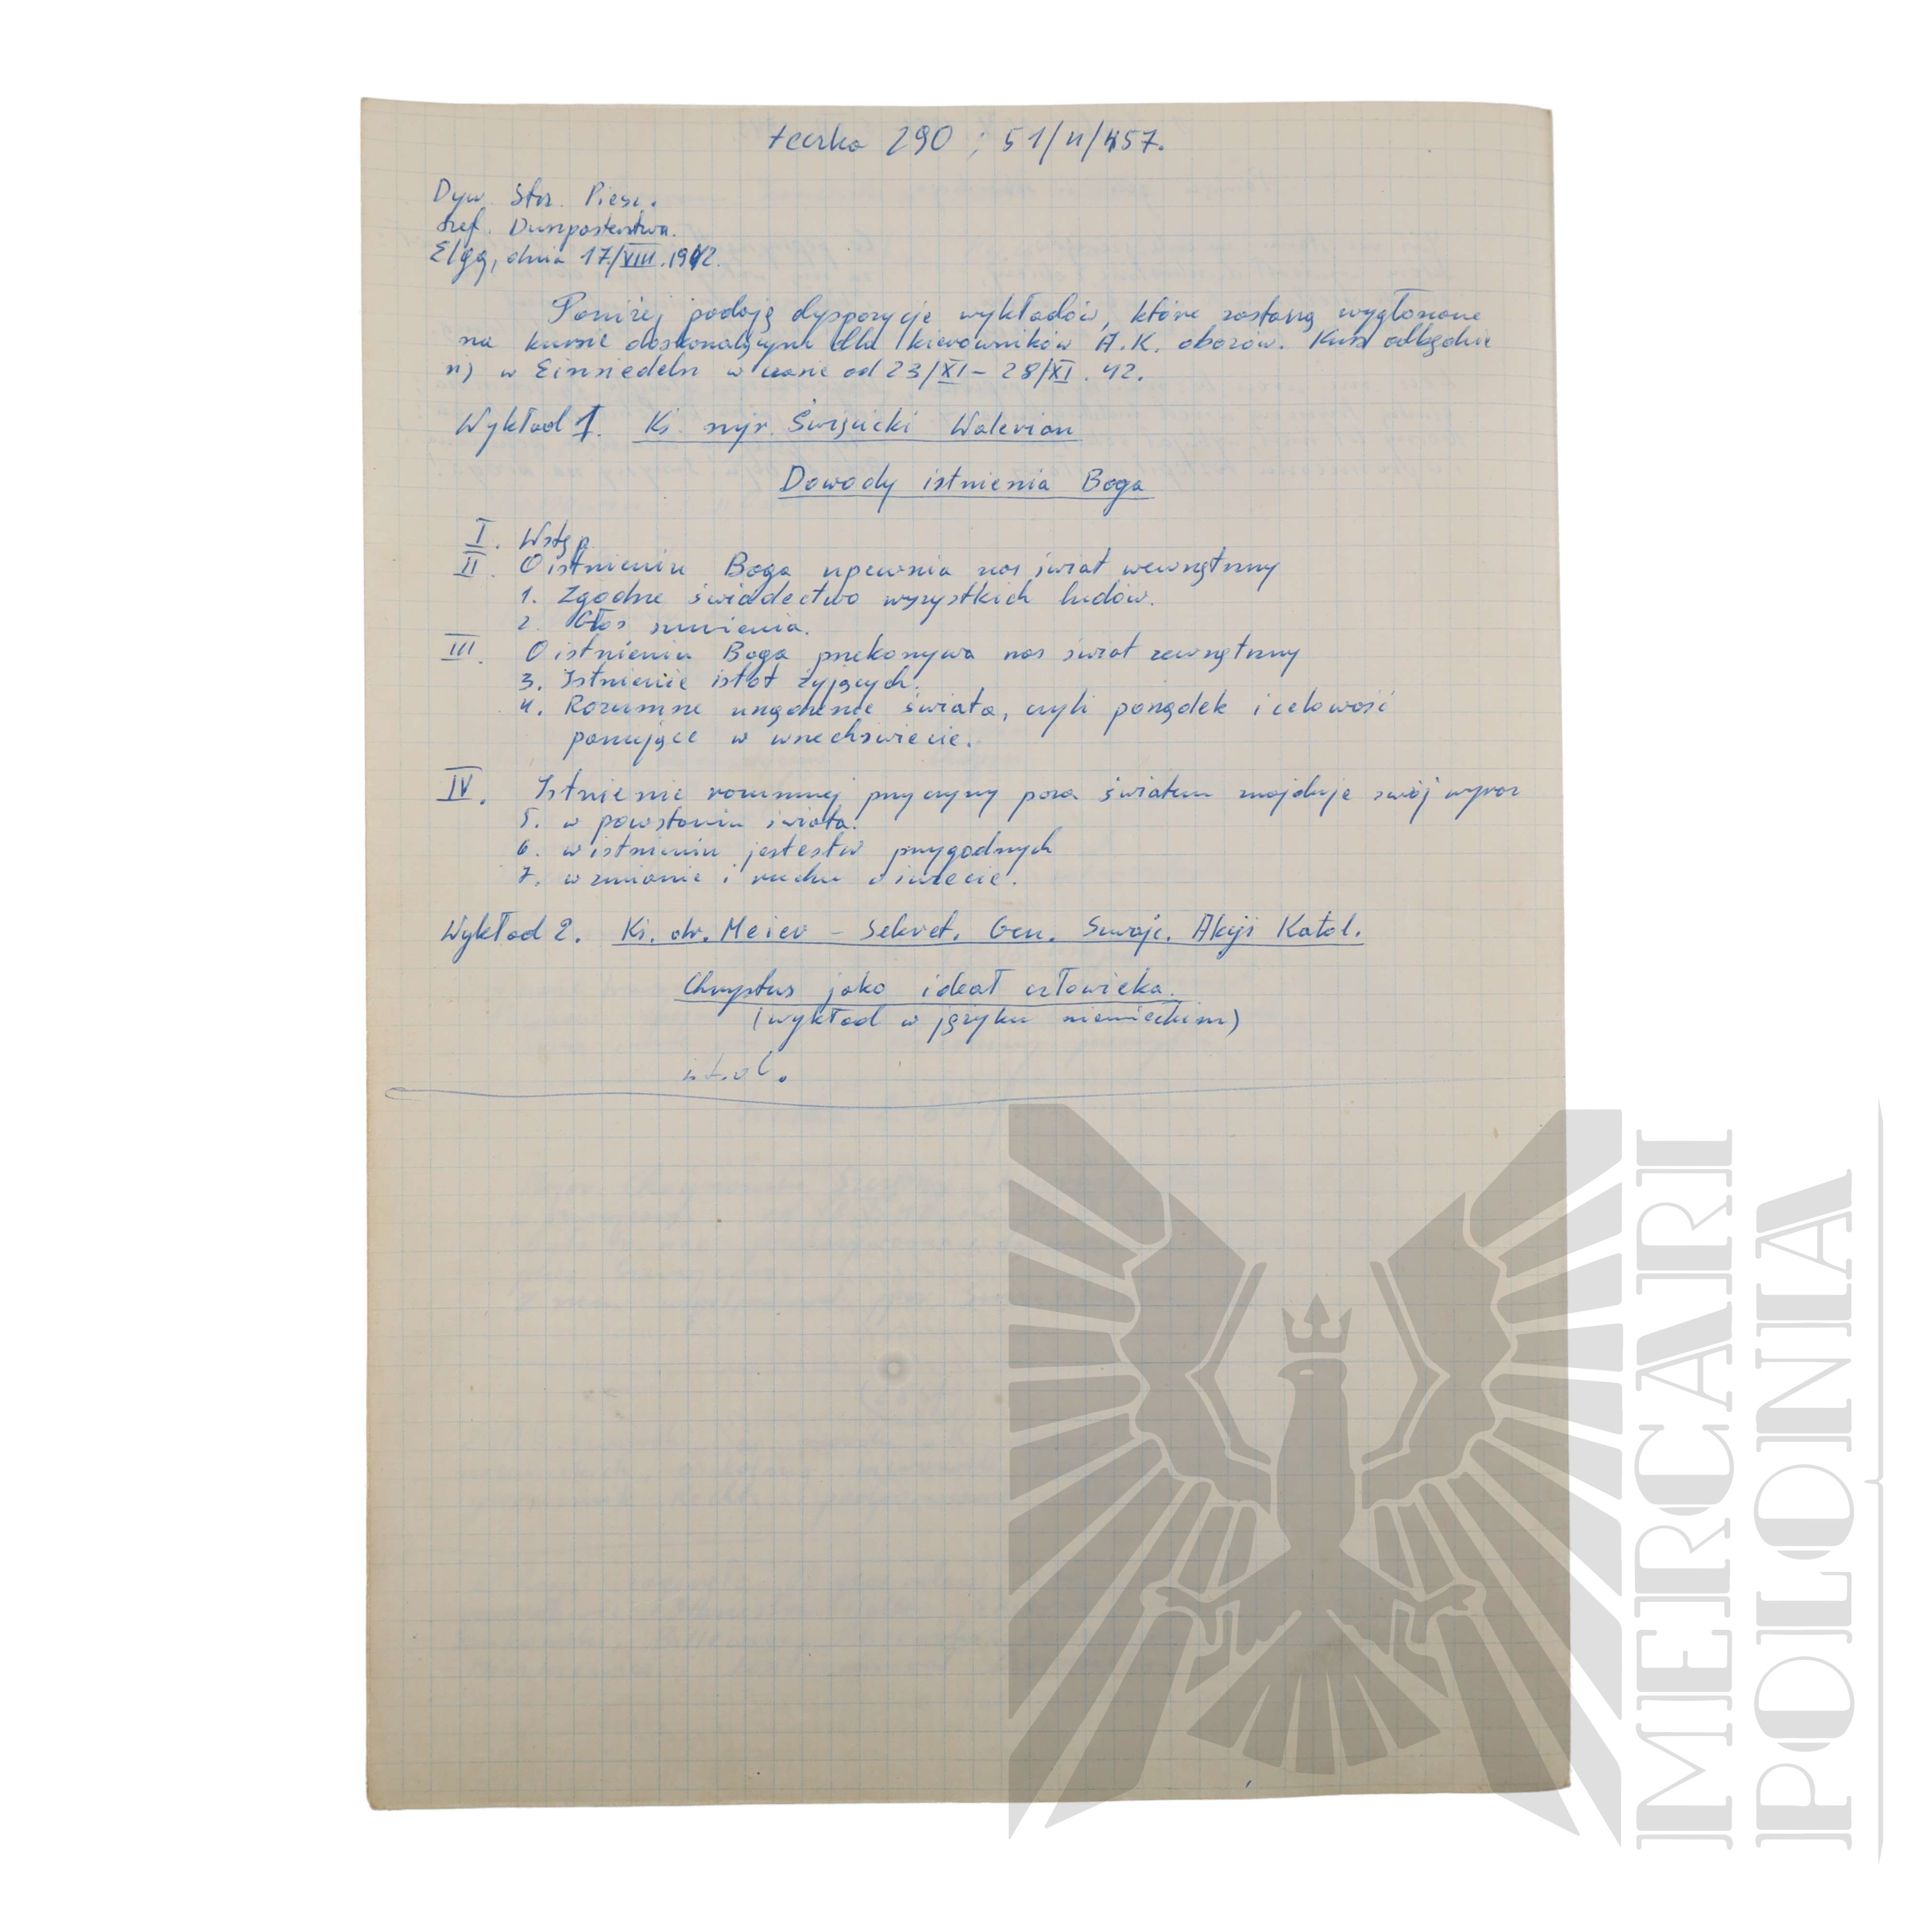 teczka 290 ; 51/II/457.
Dyw. Strz. Piesz.
Szef. Duszpasterstwa.
Elgg, dnia 17./VIII.1942.
Poniżej podaję dyspozycje wykładów, które zostaną wygłoszone
na kursie doskonalącym dla kierowników A.K. obozów. Kurs odbędzie
się w Einsiedeln w czasie od 23/XI – 28/XI. 42.
Wykład 1. Ks. mjr. Święcicki Walerian
Dowody istnienia Boga
I. Wstęp
II. O istnieniu Boga upewnia nas świat wewnętrzny
1. Zgodne świadectwo wszystkich ludów.
2. Głos sumienia.
III. O istnieniu Boga przekonywa nas świat zewnętrzny
3. Istnienie istot żyjących.
4. Rozumne urządzenie świata, czyli porządek i celowość
panujące w wszechświecie.
IV. Istnienie rozumnej przyczyny poza światem znajduje swój wyraz
5. w powstaniu świata.
6. w istnieniu jestestw przygodnych
7. w zmianie i ruchu w świecie.
Wykład 2. Ks. dr. Meier – Sekret. Gen. Szwajc. Akcji Katol.
Chrystus jako ideał człowieka.
(wykład w języku niemieckim)
MERCARI
POLONIA